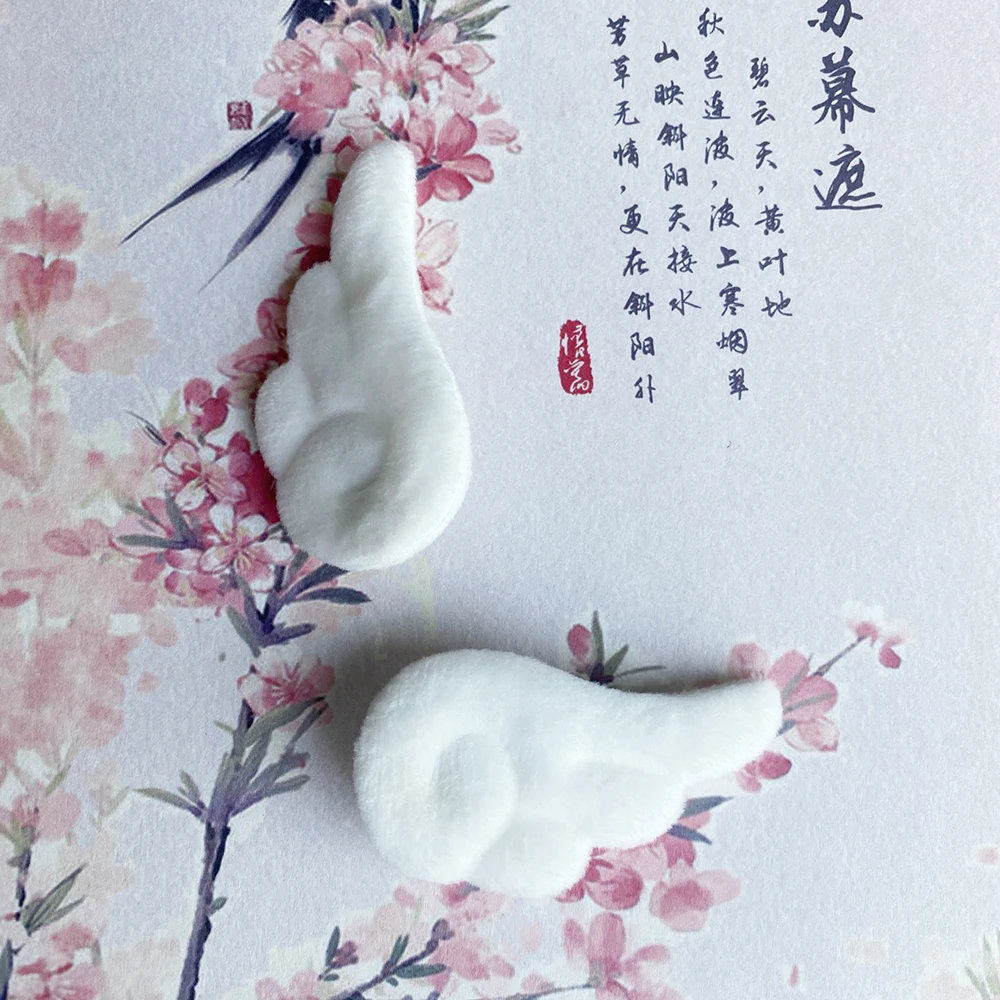 苏幕遮
碧云天，黄叶地
秋色连波，波上寒烟翠
山映斜阳天接水
芳草无情，更在斜阳外